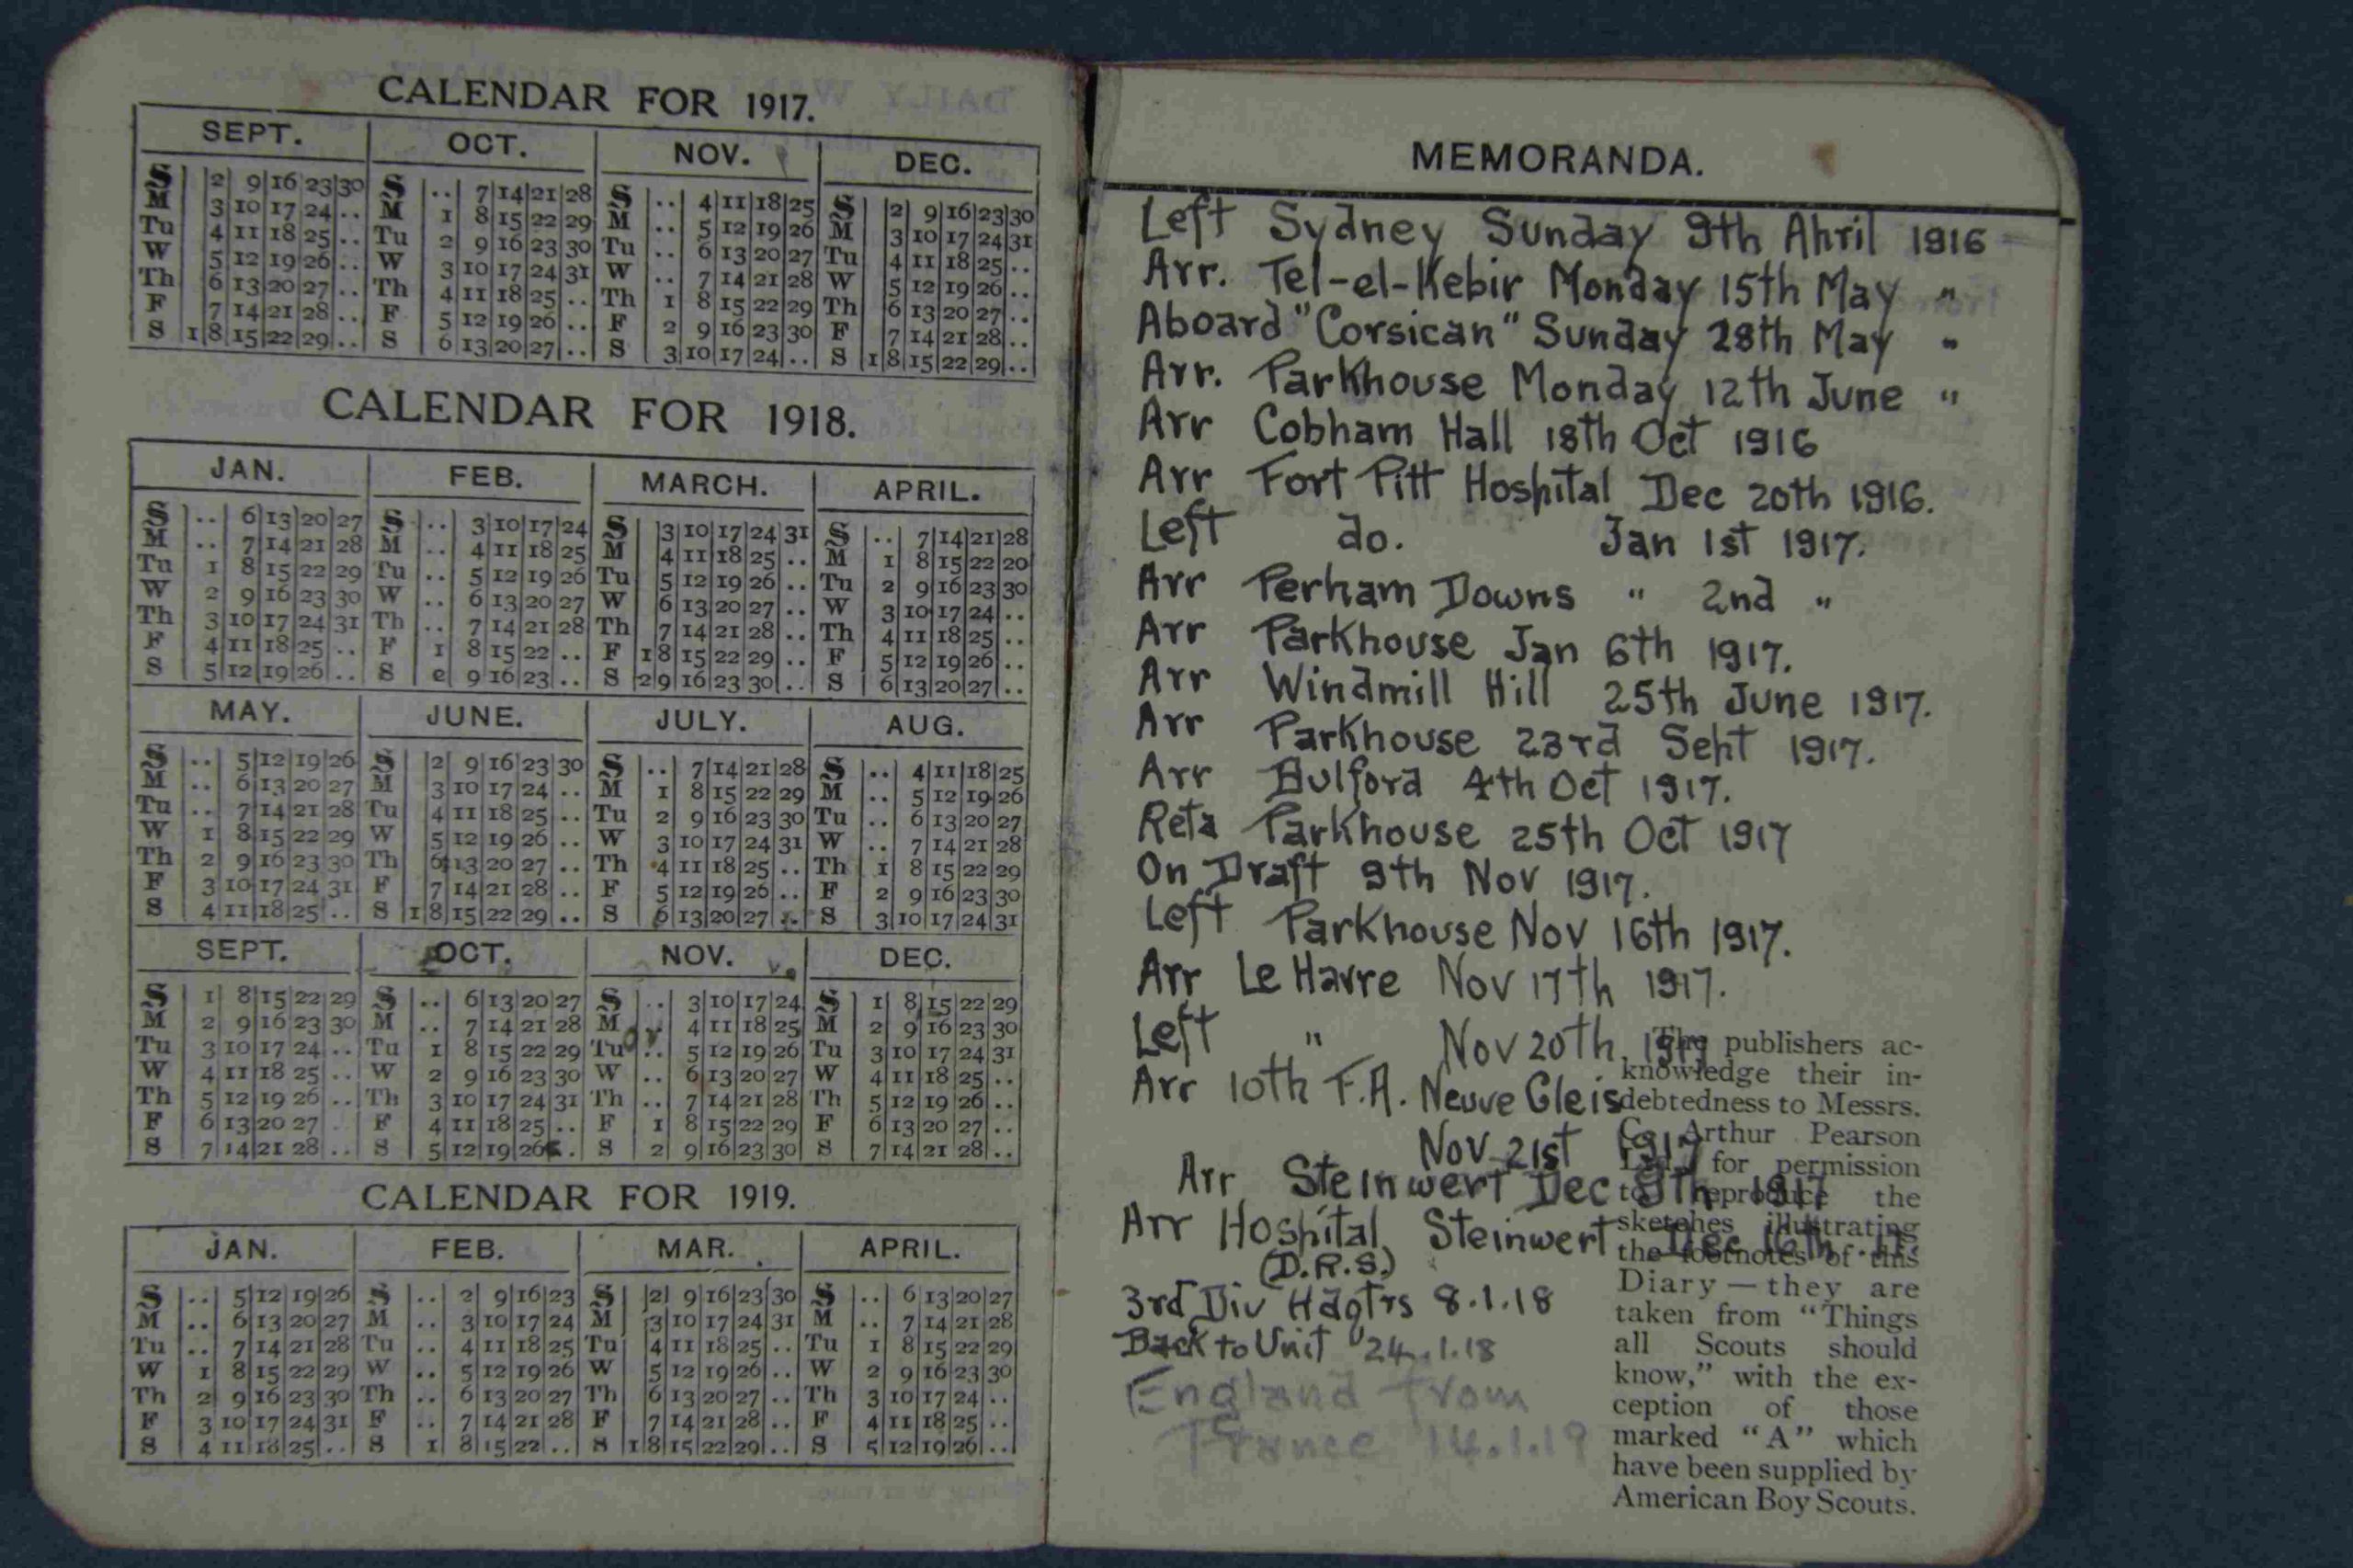 CALENDAR FOR 1917.
SEPT. OCT. NOV. DEC.
S 2 9 16 23 30 S .. 7 14 21 28 S .. 4 11 18 25 S 2 9 16 23 30
M 3 10 17 24 .. M 1 8 15 22 29 M .. 5 12 19 26 M 3 10 17 24 31
Tu 4 11 18 25 .. Tu 2 9 16 23 30 Tu .. 6 13 20 27 Tu 4 11 18 25 ..
W 5 12 19 26 .. W 3 10 17 24 31 W .. 7 14 21 28 W 5 12 19 26 ..
Th 6 13 20 27 .. Th 4 11 18 25 .. Th 1 8 15 22 29 Th 6 13 20 27 ..
F 7 14 21 28 .. F 5 12 19 26 .. F 2 9 16 23 30 F 7 14 21 28 ..
S 1 8 15 22 29 .. S 6 13 20 27 .. S 3 10 17 24 .. S 1 8 15 22 29 ..
CALENDAR FOR 1918.
JAN. FEB. MARCH. APRIL.
S .. 6 13 20 27 S .. 3 10 17 24 S 3 10 17 24 31 S .. 7 14 21 28
M .. 7 14 21 28 M .. 4 11 18 25 M 4 11 18 25 .. M 1 8 15 22 20
Tu 1 8 15 22 29 Tu .. 5 12 19 26 Tu 5 12 19 26 .. Tu 2 9 16 23 30
W 2 9 16 23 30 W .. 6 13 20 27 W 6 13 20 27 .. W 3 10 17 24 ..
Th 3 10 17 24 31 Th .. 7 14 21 28 Th 7 14 21 28 .. Th 4 11 18 25 ..
F 4 11 18 25 .. F 1 8 15 22 .. F 1 8 15 22 29 .. F 5 12 19 26 ..
S 5 12 19 26 .. S e 9 16 23 .. S 2 9 16 23 30 .. S 6 13 20 27 ..
MAY. JUNE. JULY. AUG.
S .. 5 12 19 26 S 2 9 16 23 30 S .. 7 14 21 28 S .. 4 11 18 25
M .. 6 13 20 27 M 3 10 17 24 .. M 1 8 15 22 29 M .. 5 12 19 26
Tu .. 7 14 21 28 Tu 4 11 18 25 .. Tu 2 9 16 23 30 Tu .. 6 13 20 27
W 1 8 15 22 29 W 5 12 19 26 .. W 3 10 17 24 31 W .. 7 14 21 28
Th 2 9 16 23 30 Th 6 13 20 27 .. Th 4 11 18 25 .. Th 1 8 15 22 29
F 3 10 17 24 31 F 7 14 21 28 .. F 5 12 19 26 .. F 2 9 16 23 30
S 4 11 18 25 .. S 1 8 15 22 29 .. S 6 13 20 27 .. S 3 10 17 24 31
SEPT. OCT. NOV. DEC.
S 1 8 15 22 29 S .. 6 13 20 27 S .. 3 10 17 24 S 1 8 15 22 29
M 2 9 16 23 30 M .. 7 14 21 28 M .. 4 11 18 25 M 2 9 16 23 30
Tu 3 10 17 24 .. Tu 1 8 15 22 29 Tu .. 5 12 19 26 Tu 3 10 17 24 31
W 4 11 18 25 .. W 2 9 16 23 30 W .. 6 13 20 27 W 4 11 18 25 ..
Th 5 12 19 26 .. Th 3 10 17 24 31 Th .. 7 14 21 28 Th 5 12 19 26 ..
F 6 13 20 27 . F 4 11 18 25 .. F 1 8 15 22 29 F 6 13 20 27 ..
S 7 14 21 28 .. S 5 12 19 26 . S 2 9 16 23 30 S 7 14 21 28 ..
CALENDAR FOR 1919.
JAN. FEB. MAR. APRIL.
S .. 5 12 19 26 S .. 2 9 16 23 S 2 9 16 23 30 S .. 6 13 20 27
M .. 6 13 20 27 M .. 3 10 17 24 M 3 10 17 24 31 M .. 7 14 21 28
Tu .. 7 14 21 28 Tu .. 4 11 18 25 Tu 4 11 18 25 .. Tu 1 8 15 22 29
W 1 8 15 22 29 W .. 5 12 19 26 W 5 12 19 26 .. W 2 9 16 23 30
Th 2 9 16 23 30 Th .. 6 13 20 27 Th 6 13 20 27 .. Th 3 10 17 24 ..
F 3 10 17 24 31 F .. 7 14 21 28 F 7 14 21 28 .. F 4 11 18 25 ..
S 4 11 18 25 .. S 1 8 15 22 .. S 1 8 15 22 29 .. S 5 12 19 26 ..
MEMORANDA.
Left Sydney Sunday 9th April 1916
Arr. Tel-el-Kebir Monday 15th May "
Aboard "Corsican" Sunday 28th May "
Arr. Parkhouse Monday 12th June "
Arr Cobham Hall 18th Oct 1916
Arr Fort Pitt Hospital Dec 20th 1916.
Left do. Jan 1st 1917.
Arr Perham Downs " 2nd "
Arr Parkhouse Jan 6th 1917.
Arr Windmill Hill 25th June 1917.
Arr Parkhouse 23rd Sept 1917.
Arr Bulford 4th Oct 1917.
Retd Parkhouse 25th Oct 1917
On Draft 9th Nov 1917.
Left Parkhouse Nov 16th 1917.
Arr Le Havre Nov 17th 1917.
Left " Nov 20th 1917
Arr 10th F.A. Neuve Gleis
Nov 21st 1917
Arr Steinwert Dec 9th 1917
Arr Hospital Steinwert Dec 16th .17.
(D.R.S.)
3rd Div Hdqtrs 8.1.18
Back to Unit 24.1.18
England from
France 14.1.19
The publishers ac-
knowledge their in-
debtedness to Messrs.
C. Arthur Pearson
Ltd. for permission
to reproduce the
sketches illustrating
the footnotes of this
Diary — they are
taken from "Things
all Scouts should
know," with the ex-
ception of those
marked "A" which
have been supplied by
American Boy Scouts.